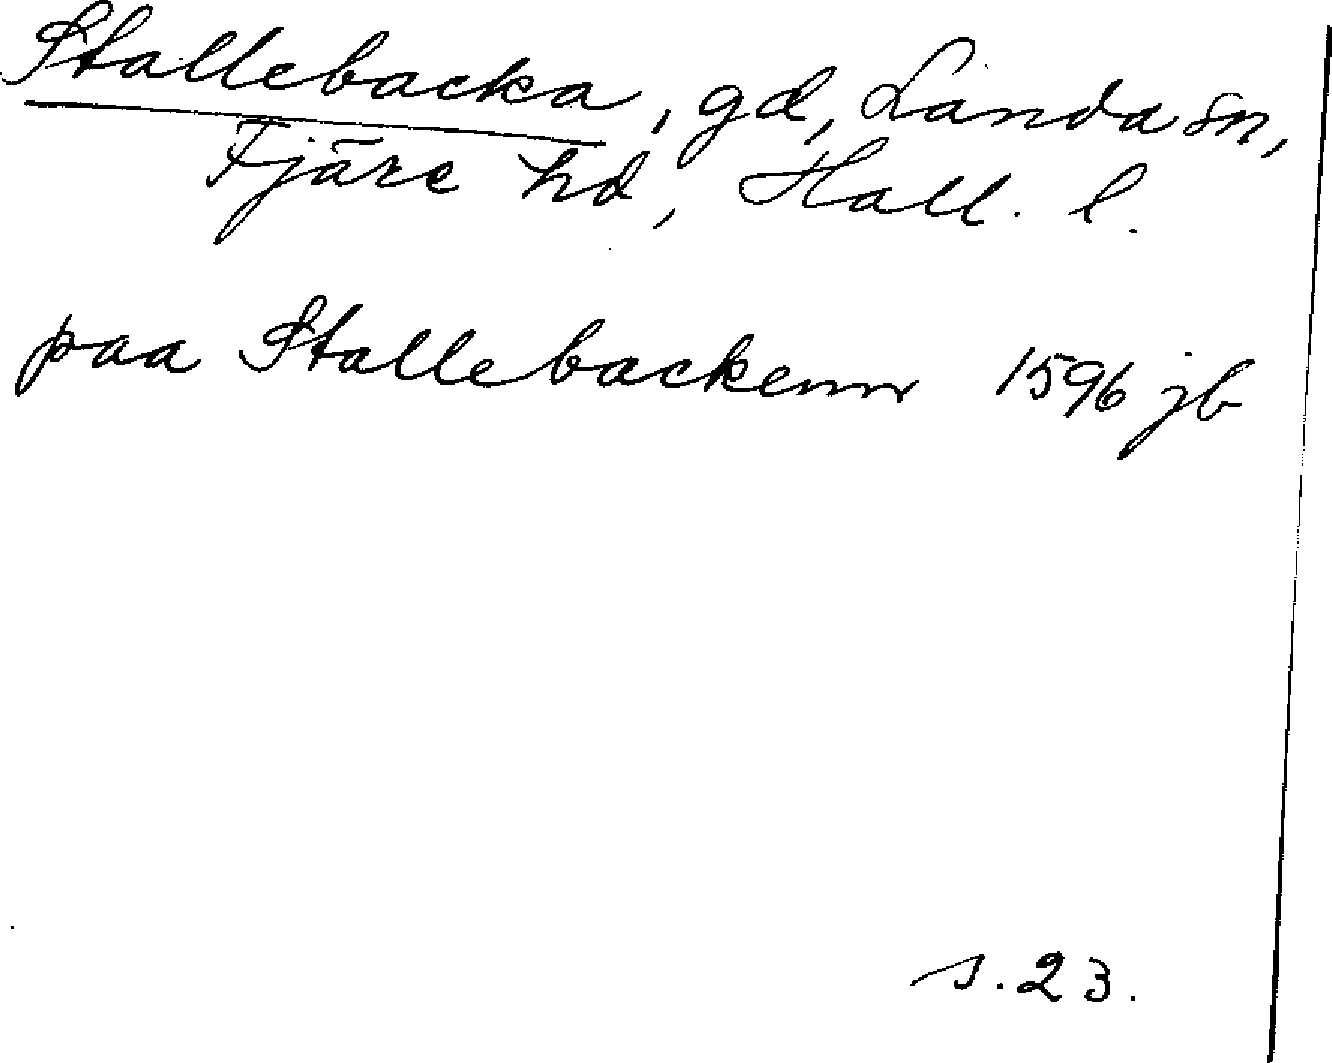 Stallebacka, gd, Landa sn,
Fjäre hd, Hall. l.
paa Stallebackenn 1596 jb
s. 23.